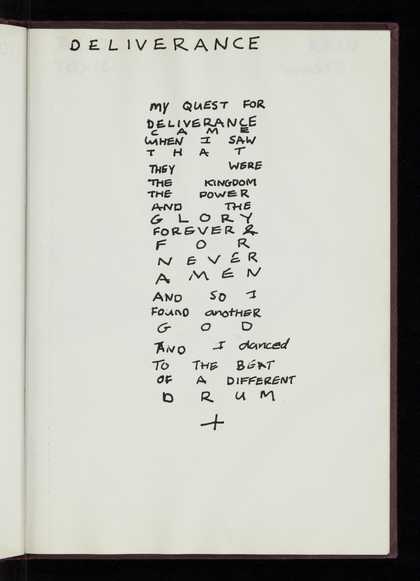 DELIVERANCE
MY QUEST FOR
DELIVERANCE
CAME
WHEN I SAW
THAT
THEY WERE
THE KINGDOM
THE POWER
AND THE
GLORY
FOREVER &
FOR
NEVER
AMEN
AND SO I
FOUND another
GOD
AND I danced
TO THE BEAT
OF A DIFFERENT
DRUM